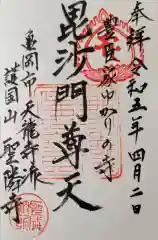 奉拝 令和五年四月二日
豊臣ゆかりの寺
毘沙門尊天
亀岡市天龍寺派
護国山 聖隣寺